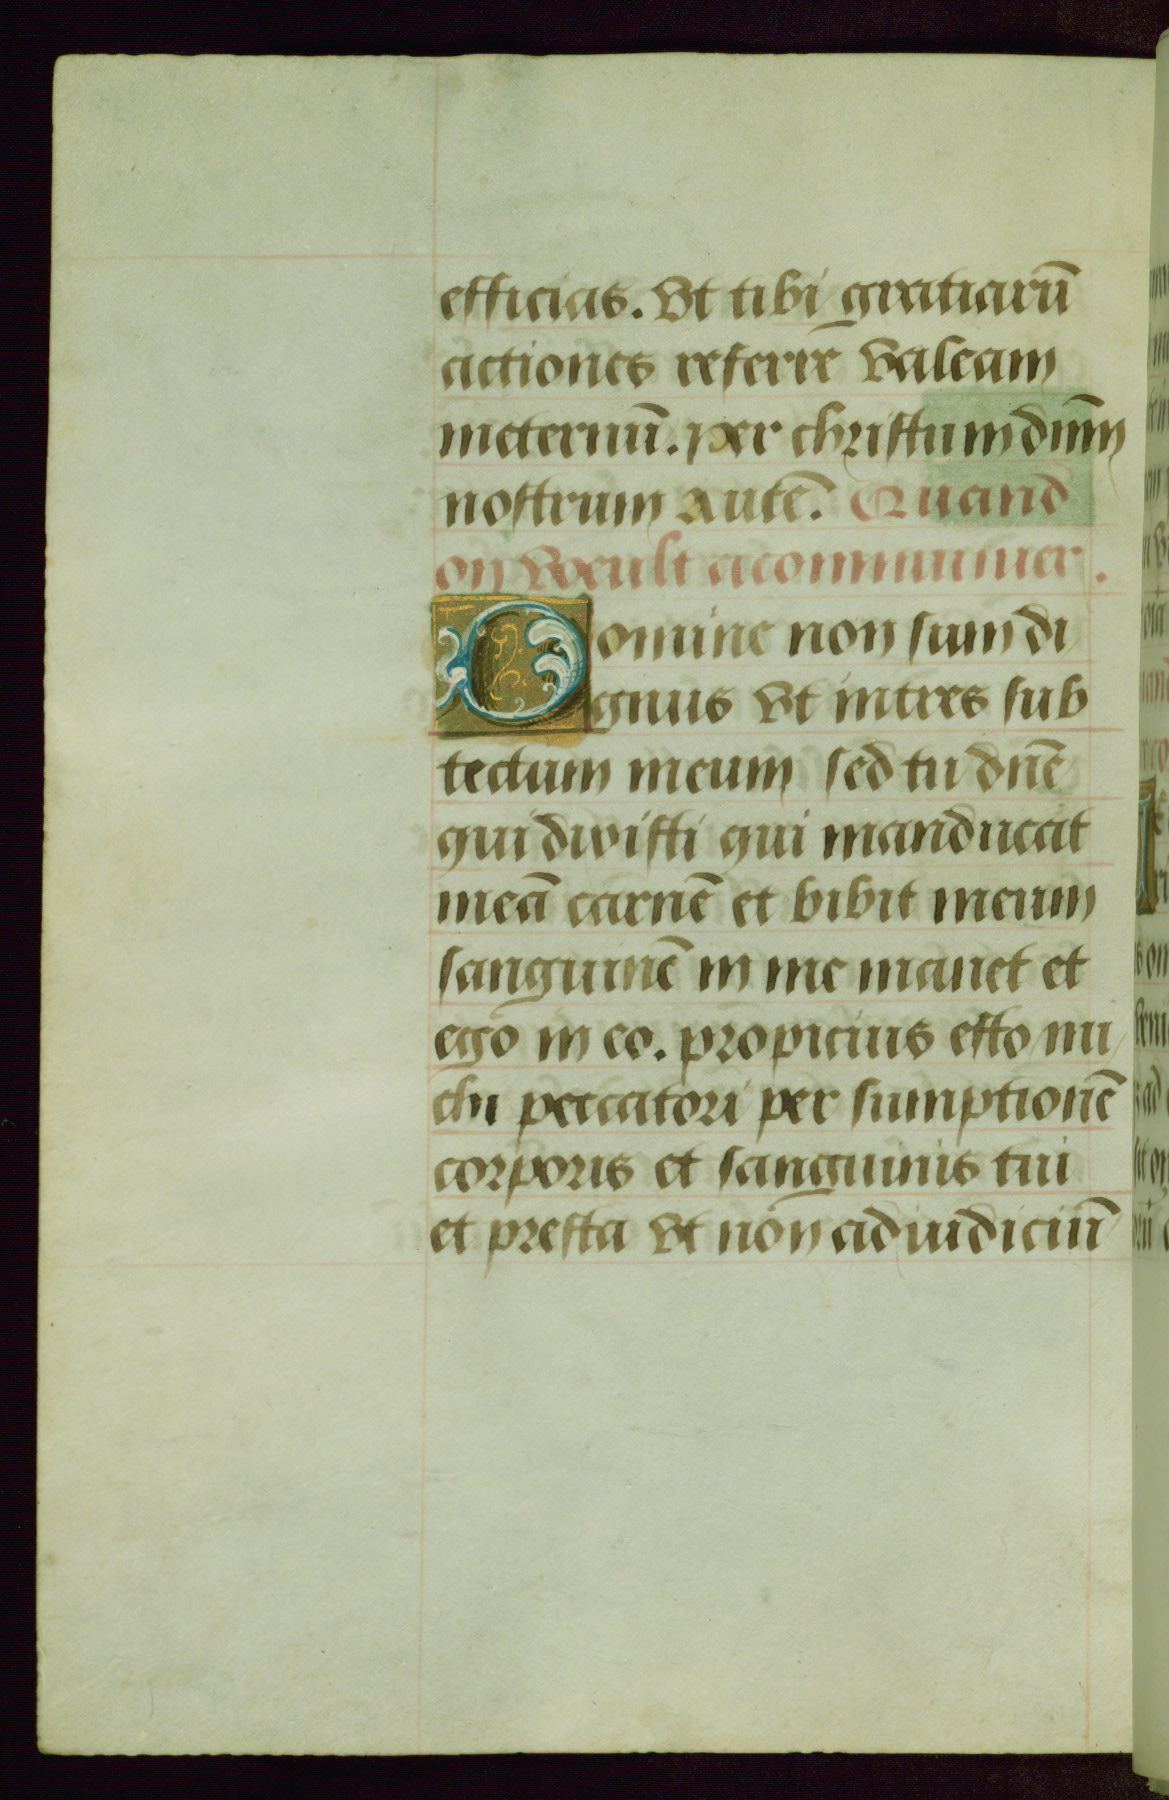 efficias. Vt tibi gratiarū
actiones referre valeam
ineternū. per christum dn̄m
nostrum Amē. Quand
on voeult acommunier.
Domine non sum di
gnus vt intres sub
tectum meum sed tu dn̄e
qui dixisti qui manducat
meā carnē et bibit meum
sanguinē in me manet et
ego in eo. propicius esto mi
chi peccatori per sumptionē
corporis et sanguinis tui
et presta vt non ad iudiciū